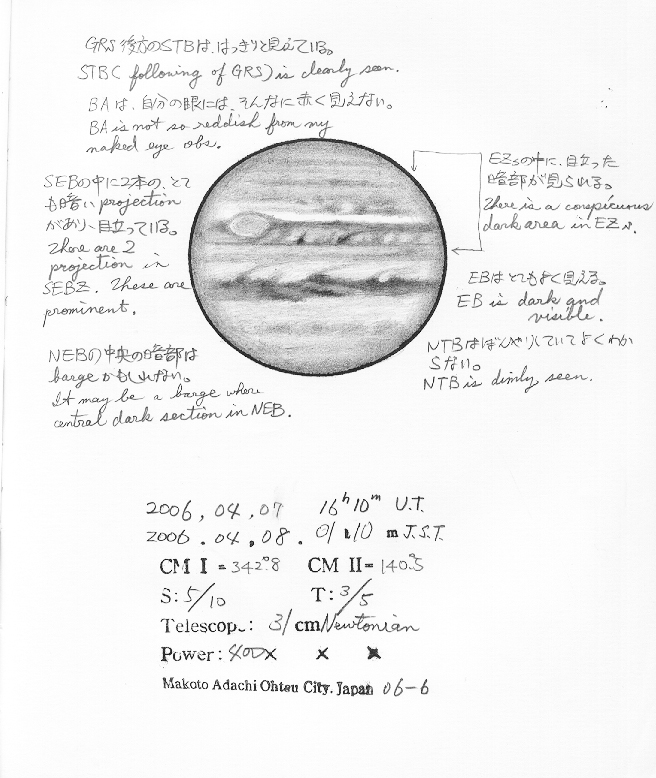 GRS後方のSTBは、はっきりと見えている。
STBC following of GRS) is clearly seen.
BAは、自分の眼には、そんなに赤く見えない。
BA is not so reddish from my
naked eye obs.
SEBの中に2本の、とて
も暗い projection
があり、目立っている。
There are 2
projection in
SEBZ. These are
prominent.
NEBの中央の暗部は
bargeかもしれない。
It may be a barge where
central dark section in NEB.
EZsの中に、目立った
暗部が見られる。
There is a conspicuous
dark area in EZs.
EBはとてもよく見える。
EB is dark and
visible.
NTBはぼんやりしていてよくわか
らない。
NTB is dimly seen.
2006, 04, 07 16h 10m U.T.
2006. 04. 08. 01 h 10 m J.S.T.
CM I = 342°.8 CM II = 140°.5
S: 5/10 T: 3/5
Telescop.: 31 cm Newtonian
Power: 400× × ×
Makoto Adachi Ohtsu City. Japan 06-6